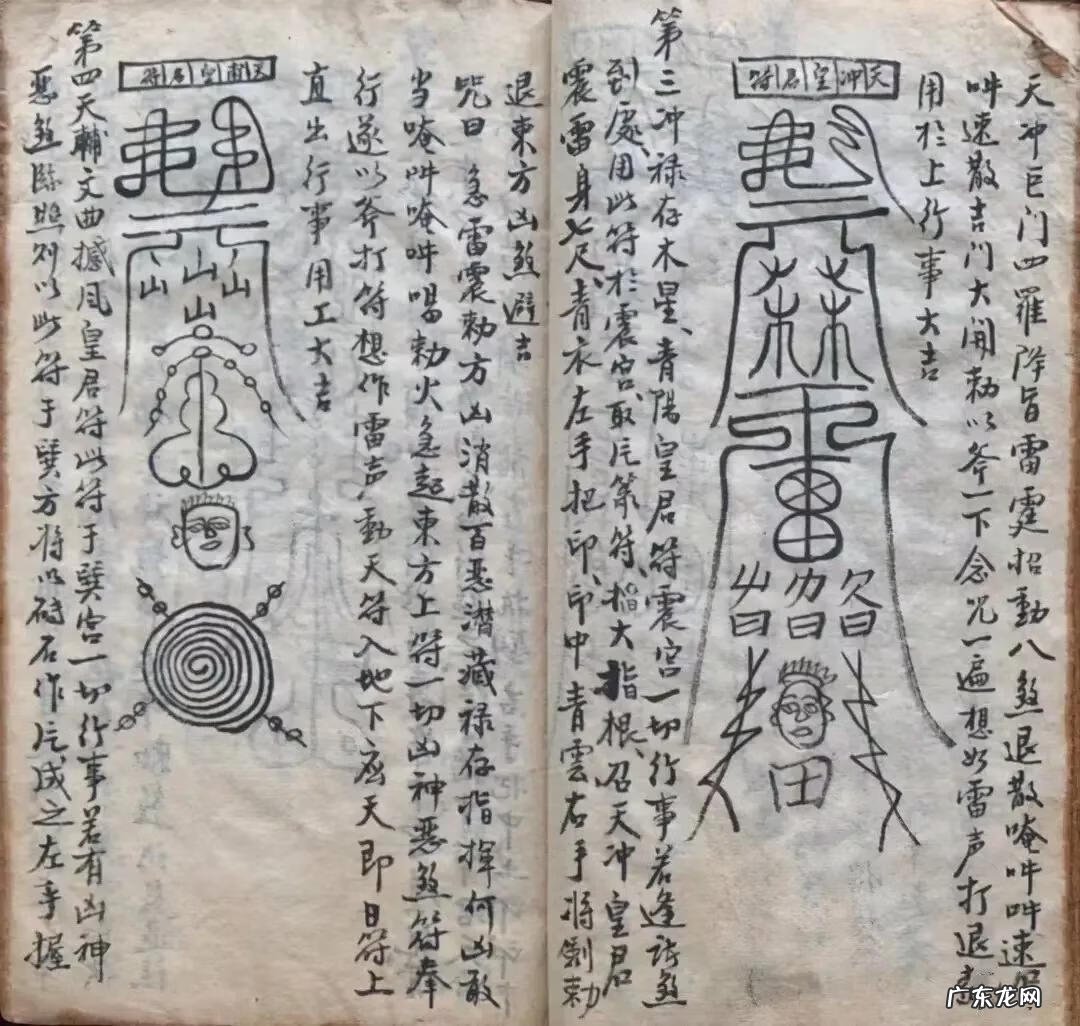 天冲巨门四罗降旨雷霆招動八煞退散唵吽吽速
吽速散吉门大開勅以斧一下念咒一遍想如雷声打退
用於上行事大吉
天冲皇君符
第三冲禄存木星、青陽皇君符、震宫一切行事若逢訴煞
到處、用此符於震宫、取瓦篆符、搯大指根、召天冲皇君
震雷身七尺、青衣左手把印、印中青雲右手将劍勅
退東方凶煞避吉
咒曰 急雷震勅方凶消散百恶潜藏禄存指揮何凶敢
当唵吽唵吽唱勅火急起東方上符一切凶神恶煞符奉
行遂以斧打符想作雷声動天符入地下底天即日符上
直出行事用工大吉
天輔皇君符
山
山
山
山
第四天輔文曲撼风皇君符此符于巽宫一切行事若有凶神
恶煞臨照列以此符于巽方将以砖石作瓦成之左手握
田
广东龙网